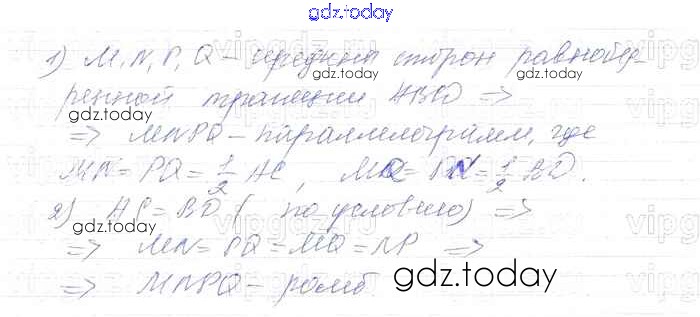 gdz.today
1) M, N, P, Q – середины сторон равнобед-
gdz.today
ренной трапеции ABCD ⇒
⇒ MNPQ – параллелограмм, где
MN = PQ = 1/2 AC, MQ = PN = 1/2 BD.
gdz.today
2) AC = BD (по условию) ⇒
⇒ MN = PQ = MQ = NP ⇒
gdz.today
⇒ MNPQ – ромб.
gdz.today